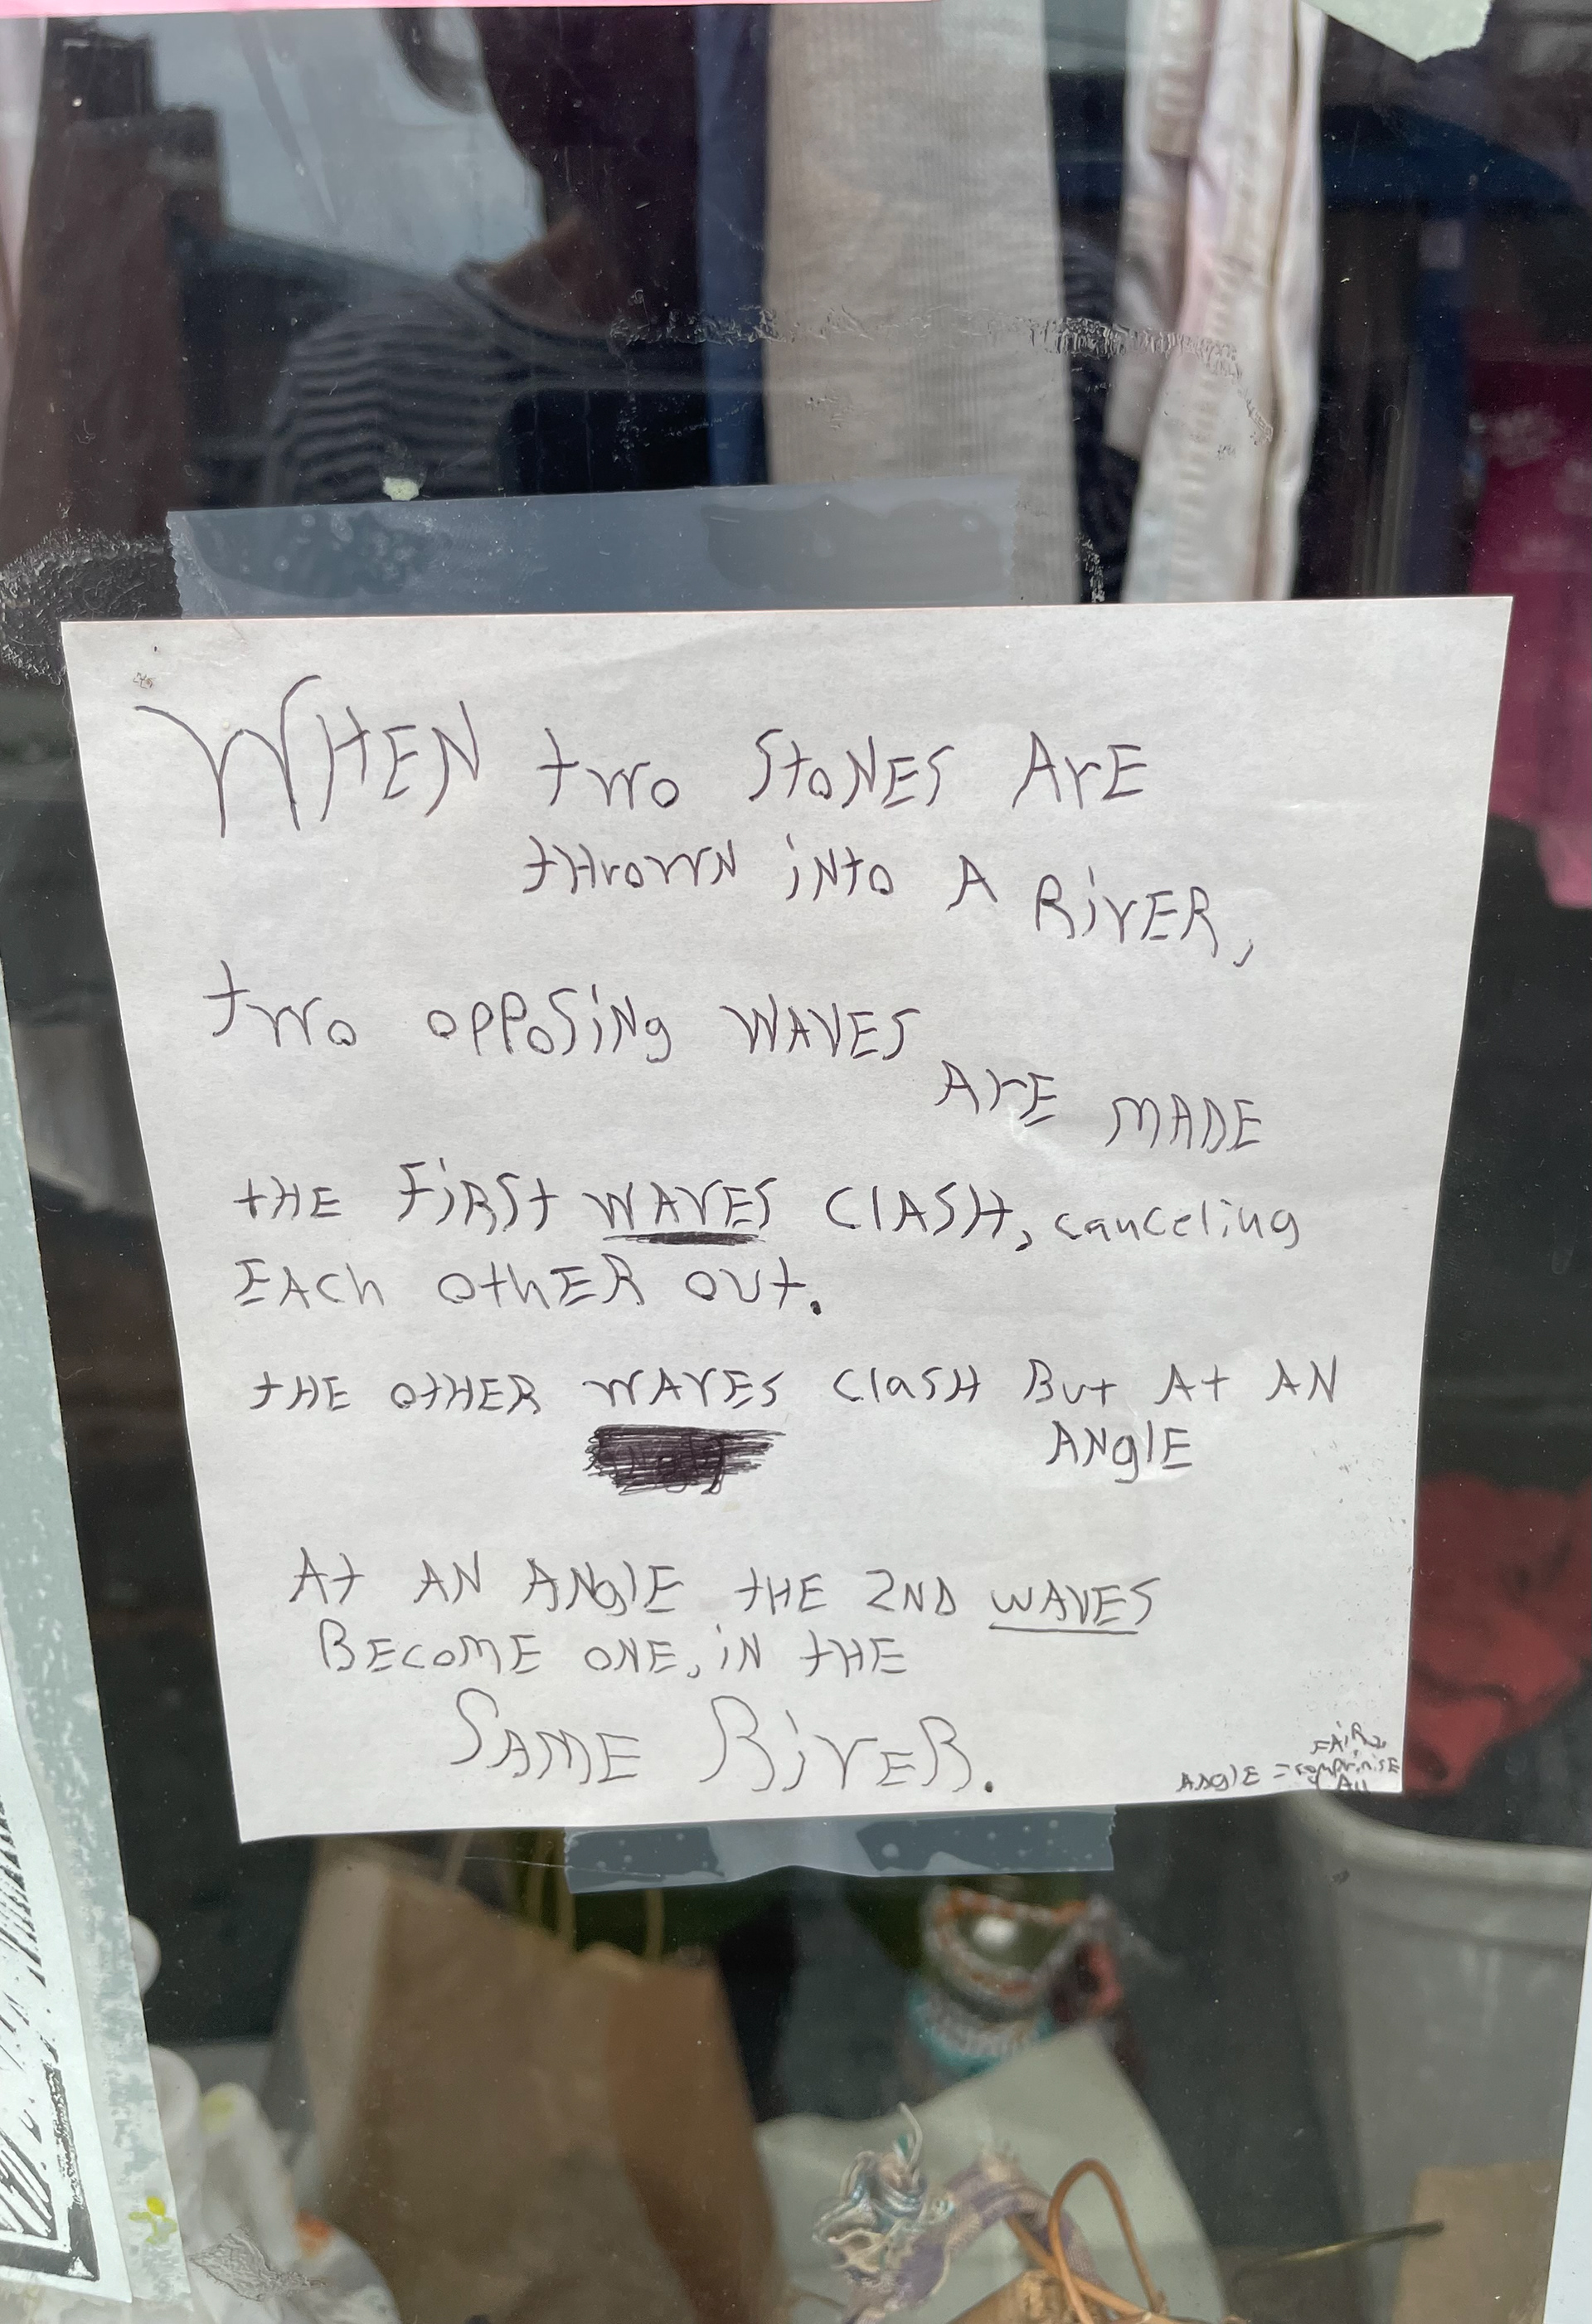 WHEN two StoNES ArE
tHrowN iNto A RivER,
two opposiNg WAVES
ArE MADE
tHE FiRSt WAVES ClASH, canceling
EAch OthER out.
tHE OtHER WAVES ClaSH But At AN
ANglE
At AN ANglE tHE 2ND WAVES
BECOME ONE, iN tHE
SAME RivER.
FAiR
ANglE =
All